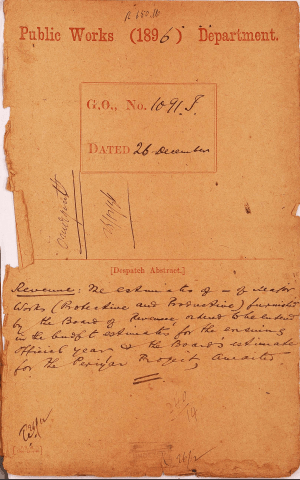 Public Works (1896) Department.
G.O., No. 1091. I.
DATED 26 December
[Despatch Abstract.]
Revenue: The estimates of Major
Works (Protective and Productive) furnished
by the Board of Revenue ordered to be entered
in the budget estimates for the ensuing
official year & the Board's estimate
for the Periyar Project, awaited